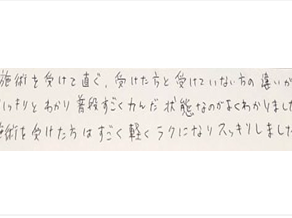 施術を受けて直ぐ、受けた方と受けていない方の違いが
はっきりとわかり普段すごく力んだ状態なのがよくわかりました
施術を受けた方はすごく軽くラクになりスッキリしました